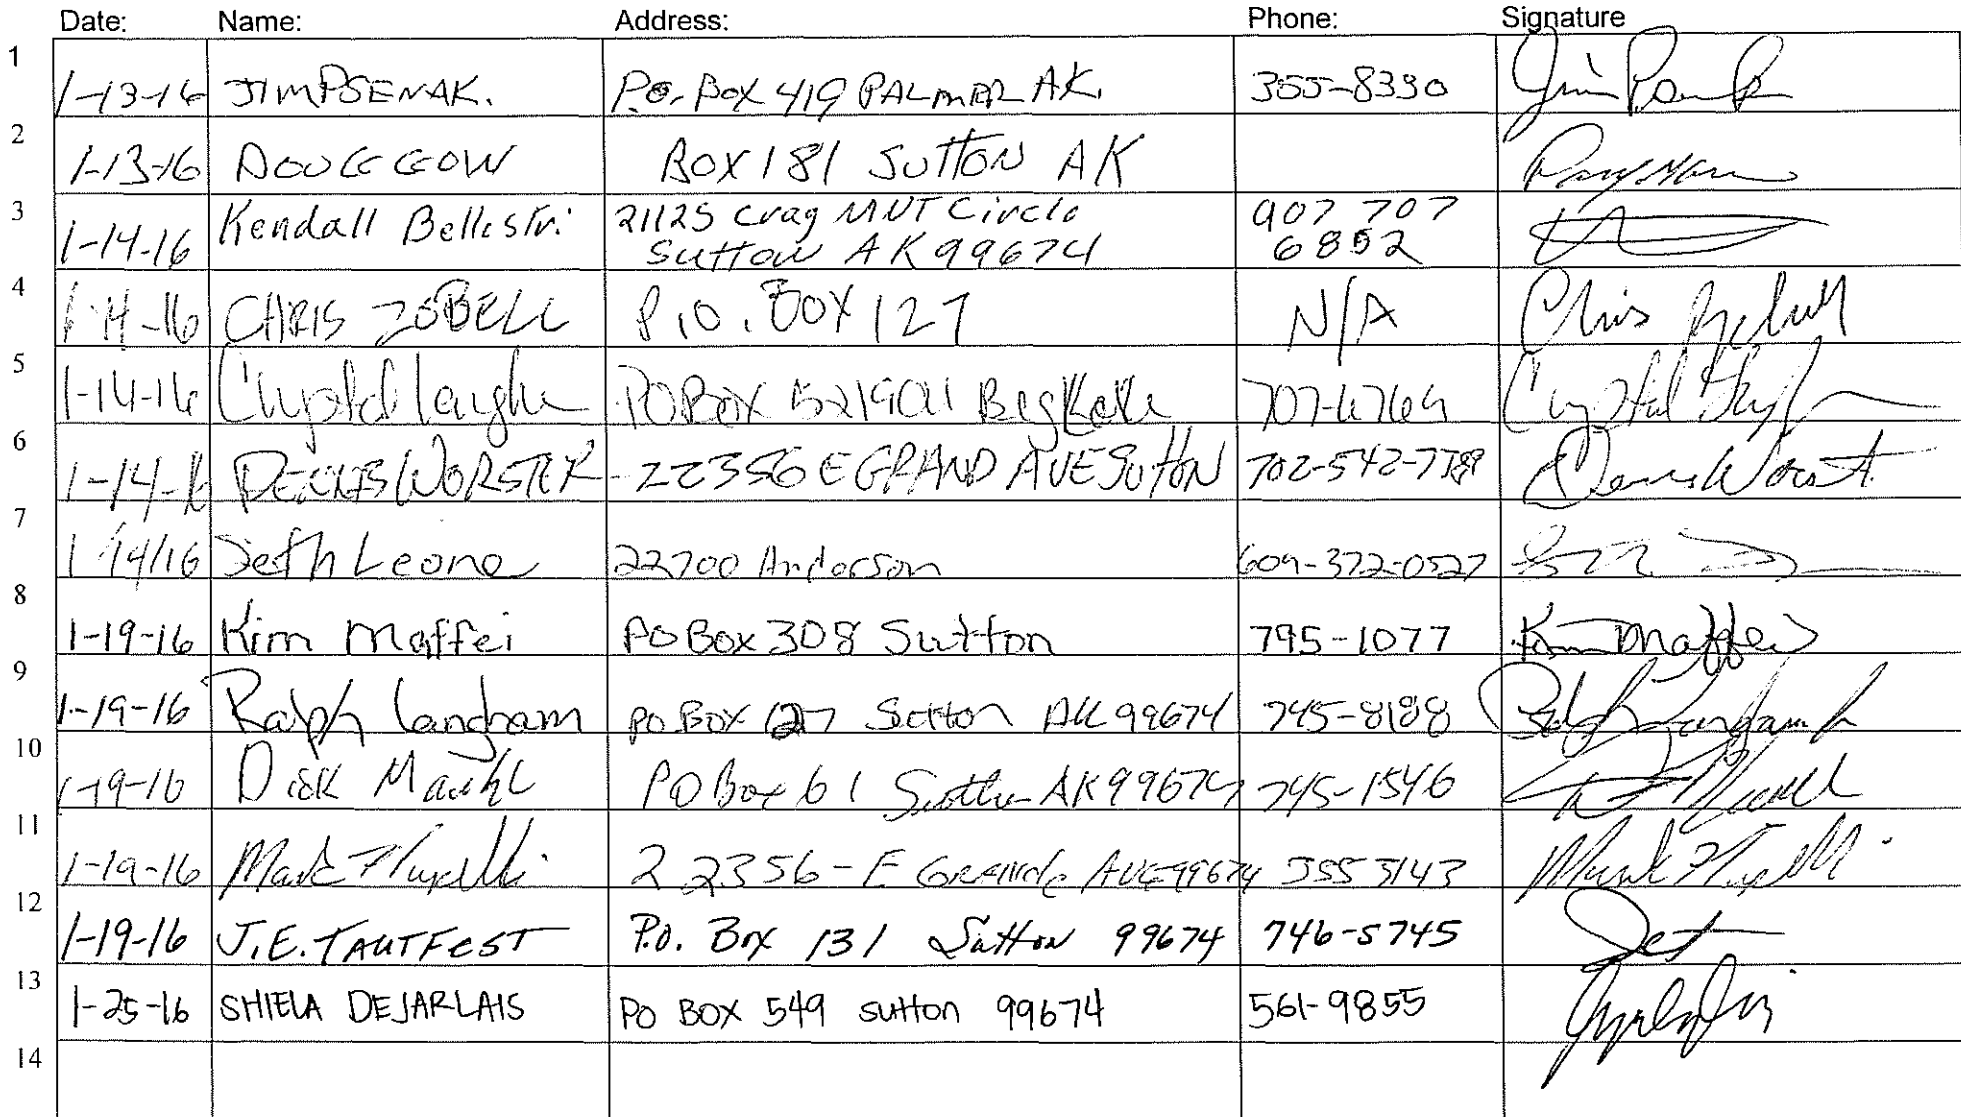 Date: Name: Address: Phone: Signature
1 1-13-16 JIM PSENAK. P.O. BOX 419 PALMER AK. 355-8330
2 1-13-16 DOUG GOW BOX 181 SUTTON AK
3 1-14-16 Kendall 21125 Crag MNT Circle 907 707
Sutton AK 99674 6852
4 1-14-16 CHRIS ZOBELL P.O. BOX 127 N/A Chris Zobell
5 1-14-16 Crystal PO Box Big Lake Crystal
6 1-14-16 DENNIS WORSTER 22356 E GRAND AVE SUTTON 702-542-
7 1/14/16 Seth Leone 22700 Anderson 609-372-0527
8 1-19-16 Kim Maffei PO Box 308 Sutton 795-1077 Kim Maffei
9 1-19-16 Ralph Langham PO BOX 127 Sutton AK 99674 745-8188
10 1-19-16 Dick PO Box 61 Sutton AK 99674 745-1546
11 1-19-16 Mark 22356-E Grande AVE 99674 355 3143 Mark
12 1-19-16 J.E. TAUTFEST P.O. Box 131 Sutton 99674 746-5745 Jet
13 1-25-16 SHIELA DEJARLAIS PO BOX 549 Sutton 99674 561-9855
14